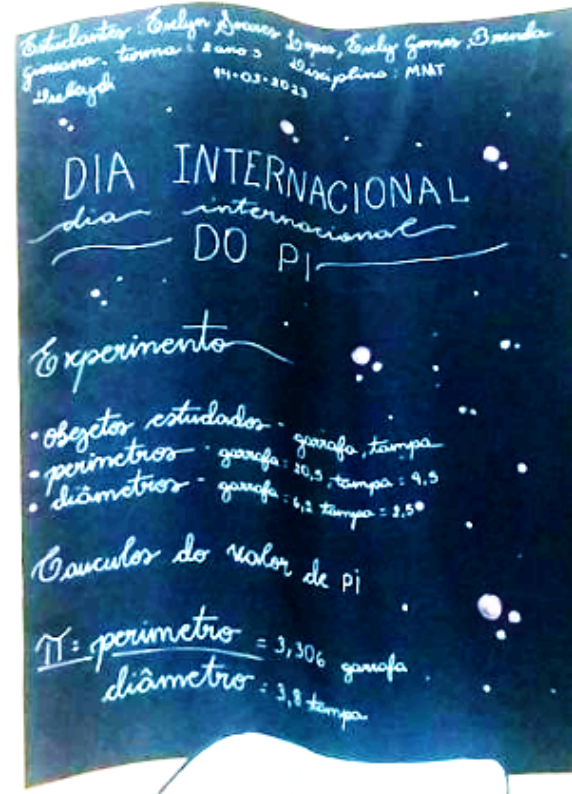 Estudantes: Evelyn Soares Lopes, Evely Gomes, Brenda
turma: 2 ano 3 Disciplina: MMT
14-03-2023
DIA INTERNACIONAL
dia internacional
DO PI
Experimento
• objetos estudados - garrafa, tampa
• perimetros - garrafa: 20,5, tampa = 9,5
• diâmetros - garrafa = 6,2 tampa = 2,5
Cauculos do valor de pi
π = perimetro = 3,306 garrafa
diâmetro = 3,8 tampa